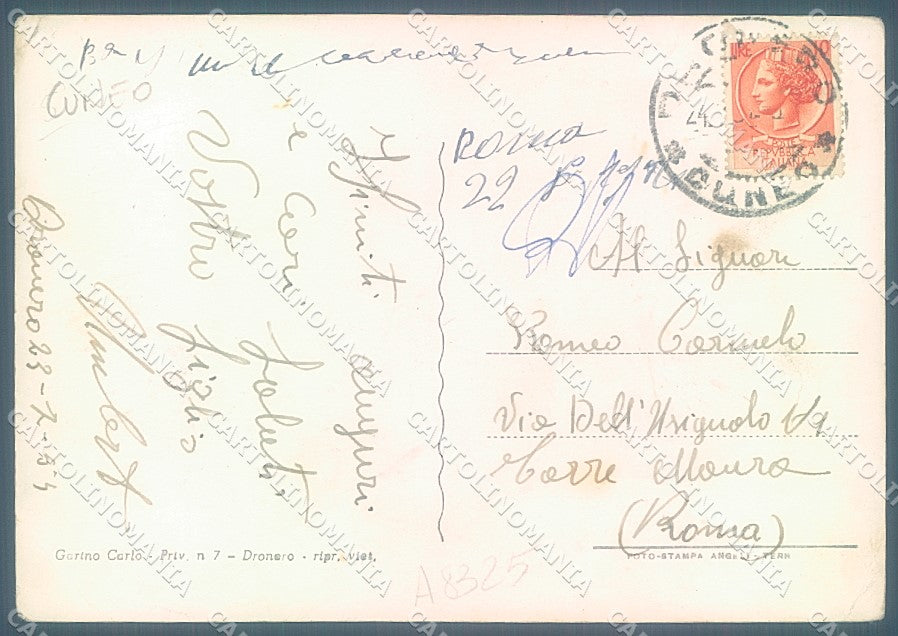 Cuneo
Dronero 23-7-54
Infiniti auguri
e Cari Saluti
Vostro figlio
Umberto
Roma
22
Al Signori
Romeo Carmelo
Via Dell'Usignolo
Torre Maura
(Roma)
LIRE 10
POSTE
REPUBBLICA
ITALIANA
DRONERO
* CUNEO *
Garino Carlo - Priv. n 7 - Dronero - ripr. viet.
FOTO-STAMPA ANGELI - TERNI
A8325
CARTOLINOMANIA